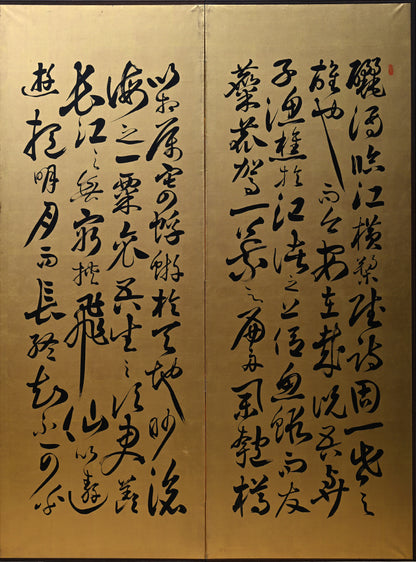 釃酒臨江橫槊賦詩固一世之
雄也而今安在哉況吾與
子漁樵於江渚之上侶魚蝦而友
麋鹿駕一葉之扁舟舉匏樽
以相屬寄蜉蝣於天地渺滄
海之一粟哀吾生之須臾羨
長江之無窮挾飛仙以遨
遊抱明月而長終知不可乎